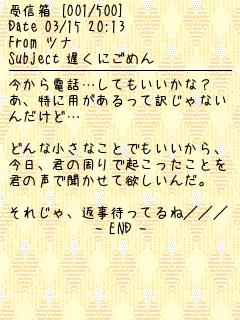 受信箱 [001/500]
Date 03/15 20:13
From ツナ
Subject 遅くにごめん
今から電話…してもいいかな?
あ、特に用があるって訳じゃない
んだけど…
どんな小さなことでもいいから、
今日、君の周りで起こったことを
君の声で聞かせて欲しいんだ。
それじゃ、返事待ってるね///
- END -